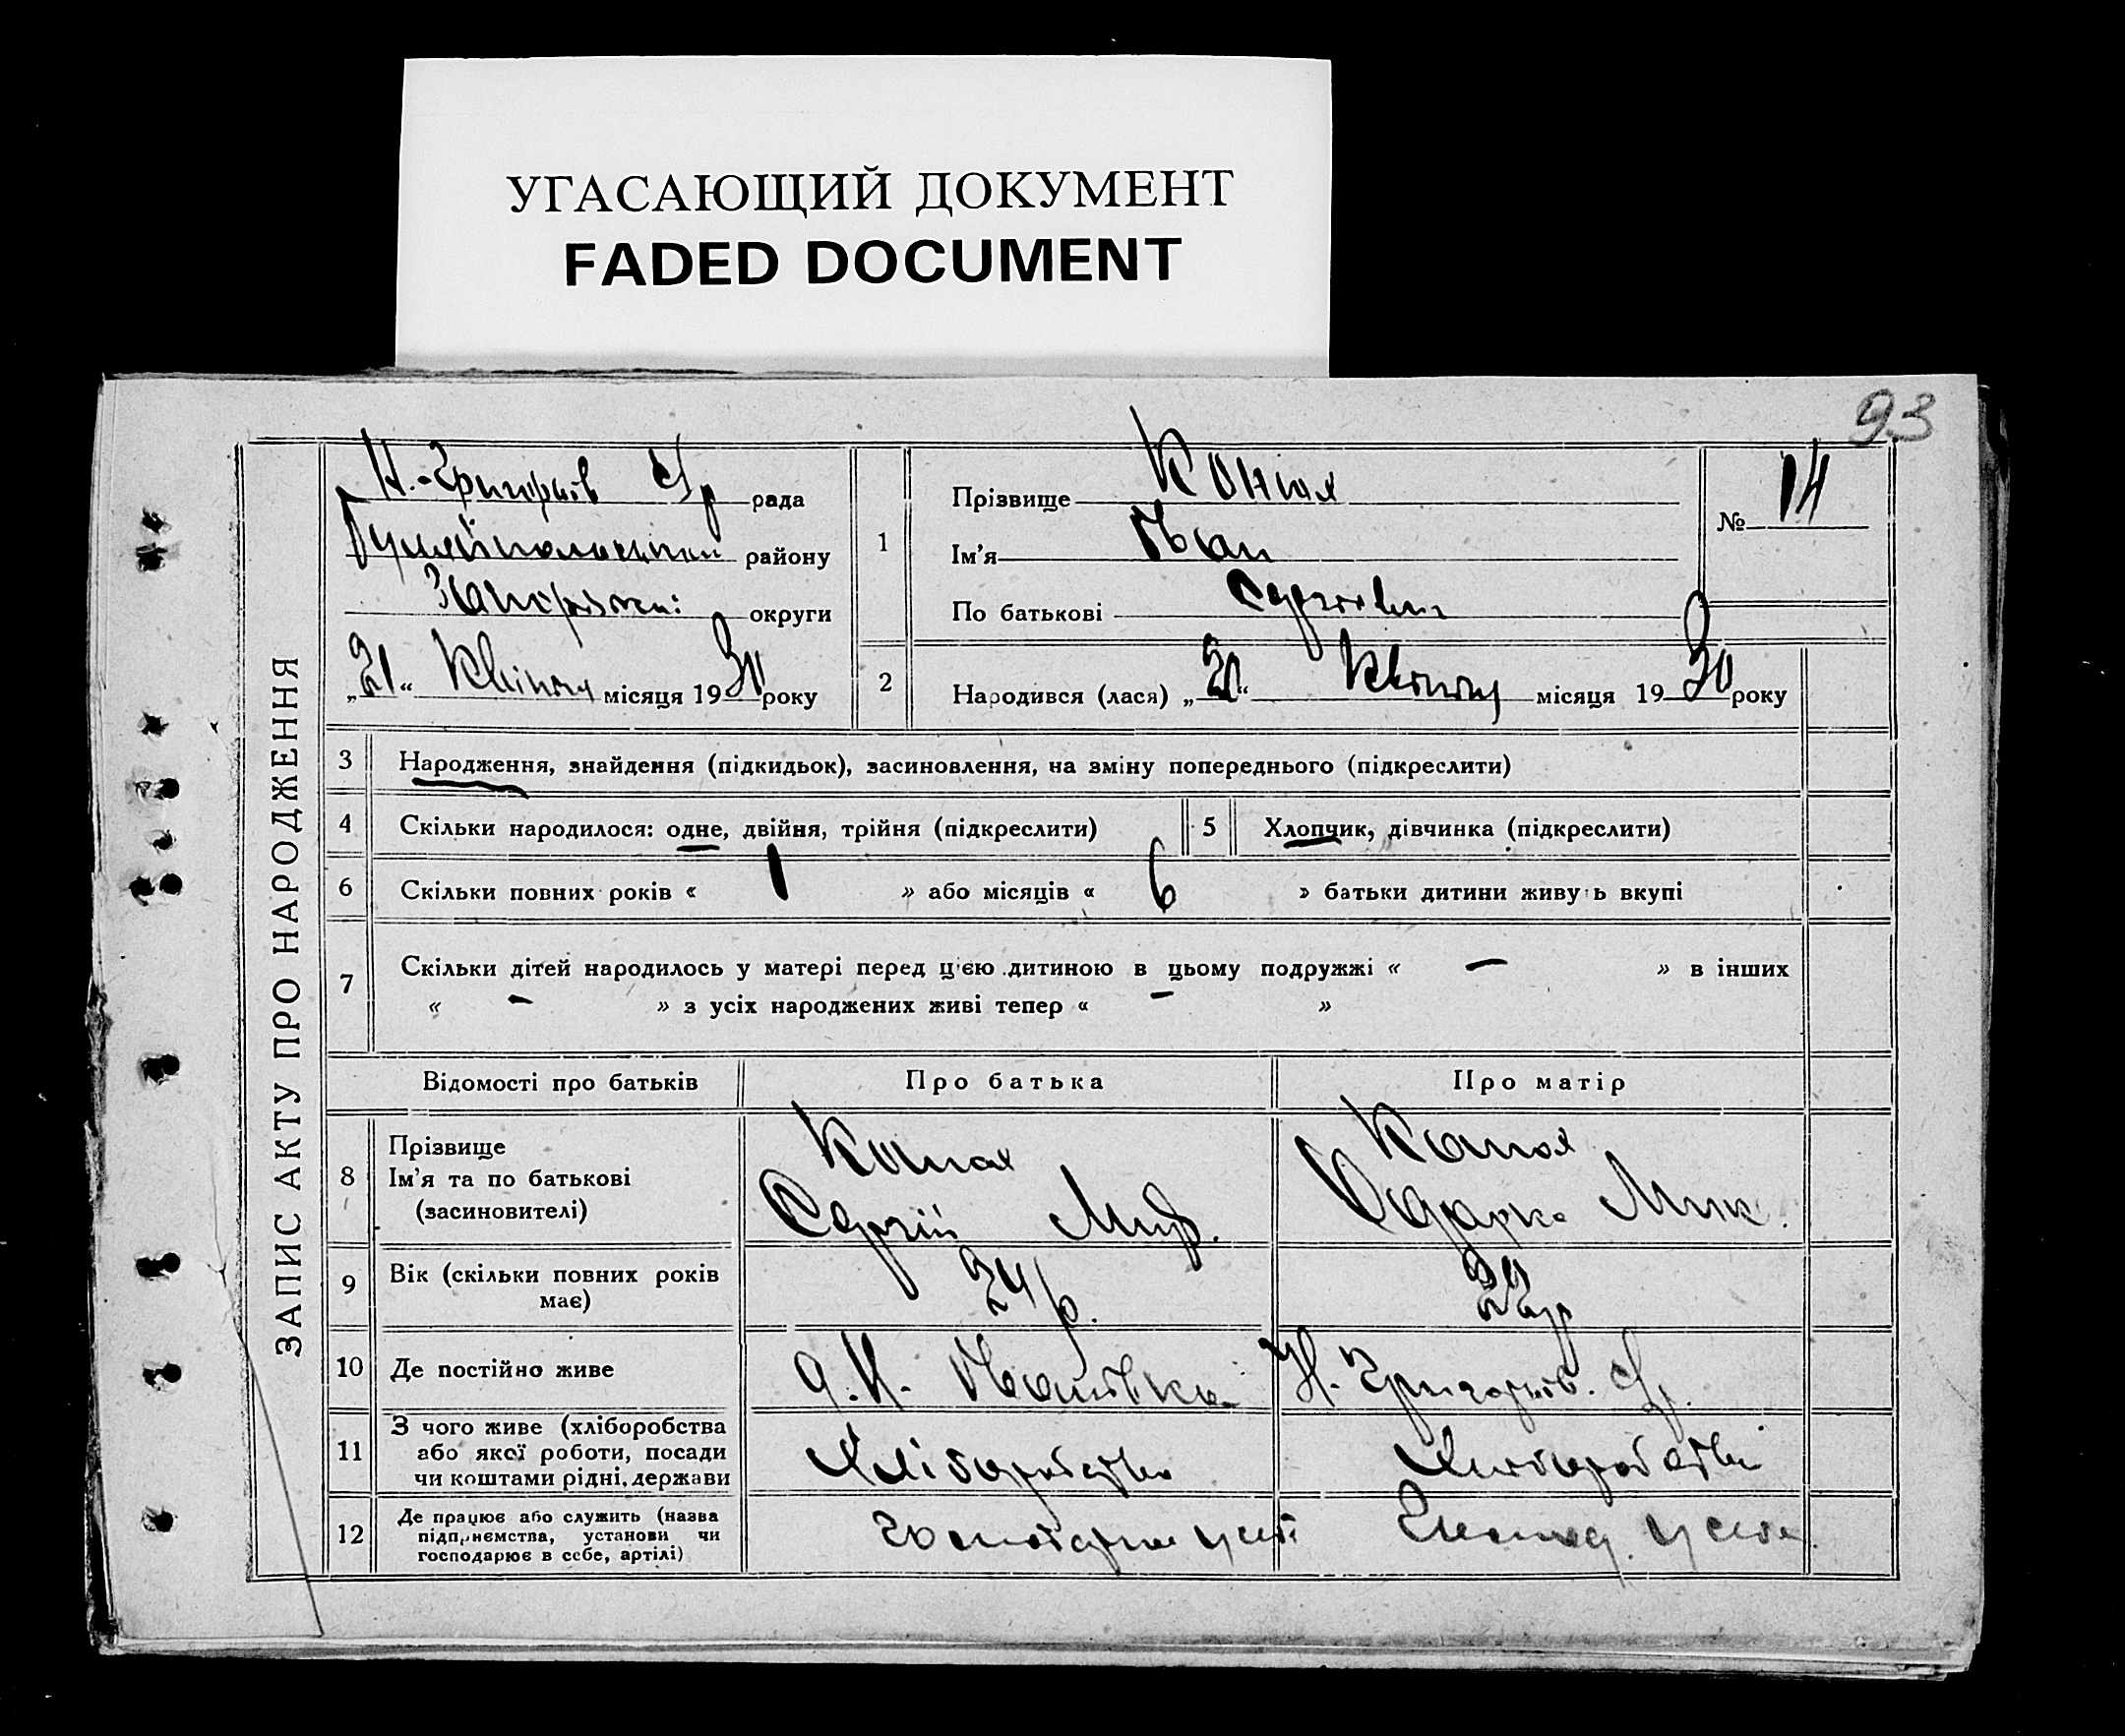 УГАСАЮЩИЙ ДОКУМЕНТ
FADED DOCUMENT
93
ЗАПИС АКТУ ПРО НАРОДЖЕННЯ
Н.-Григорів С/р рада
району
округи
„21“ Квітня місяця 1930 року
1
Прізвище
Ім'я Іван
По батькові Сергієвич
№ 14
2
Народився (лася) „20“ Квітня місяця 1930 року
3 Народження, знайдення (підкидьок), засиновлення, на зміну попереднього (підкреслити)
4 Скільки народилося: одне, двійня, трійня (підкреслити)
5 Хлопчик, дівчинка (підкреслити)
6 Скільки повних років « 1 » або місяців « 6 » батьки дитини живуть вкупі
7 Скільки дітей народилось у матері перед цією дитиною в цьому подружжі « — » в інших
« — » з усіх народжених живі тепер « — »
Відомості про батьків
Про батька
Про матір
8 Прізвище
Ім'я та по батькові
(засиновителі)
Сергій Миф.
Одарка Мик.
9 Вік (скільки повних років
має)
24 р.
22 р
10 Де постійно живе
Н. Григорів. С/р.
11 З чого живе (хліборобства
або якої роботи, посади
чи коштами рідні, держави
Хліборобство
Хліборобство
12 Де працює або служить (назва
підприємства, установи чи
господарює в себе, артілі)